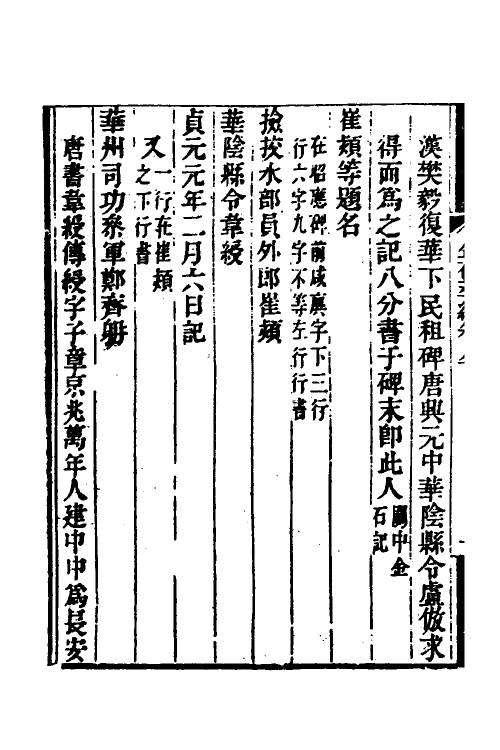 漢樊毅復華下民租碑唐興元中華陰縣令盧倣求
得而爲之記八分書于碑末卽此人關中金
石記
崔頍等題名
在昭應碑前咸廙字下三行
行六字九字不等左行行書
撿挍水部員外郎崔頍
華陰縣令韋綬
貞元元年二月六日記
又一行在崔頍
之下行書
華州司功叅軍鄭齊聃
唐書韋綬傳綬字子章京兆萬年人建中中爲長安